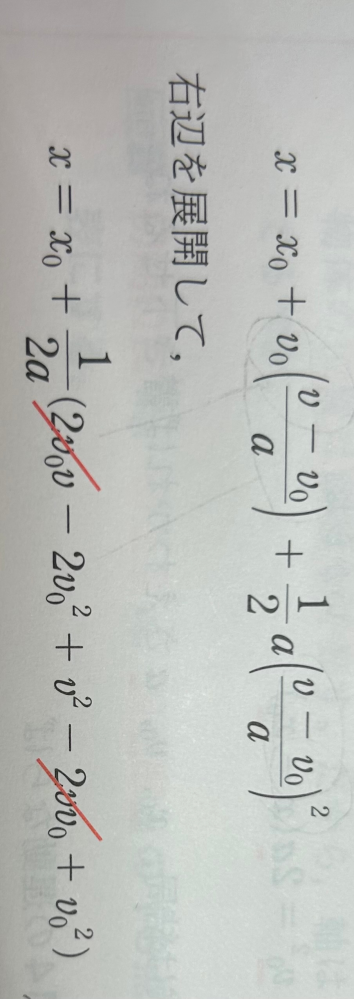 x = x₀ + v₀((v − v₀)/a) + (1/2)a((v − v₀)/a)²
右辺を展開して，
x = x₀ + (1/2a)(2v₀v − 2v₀² + v² − 2vv₀ + v₀²)